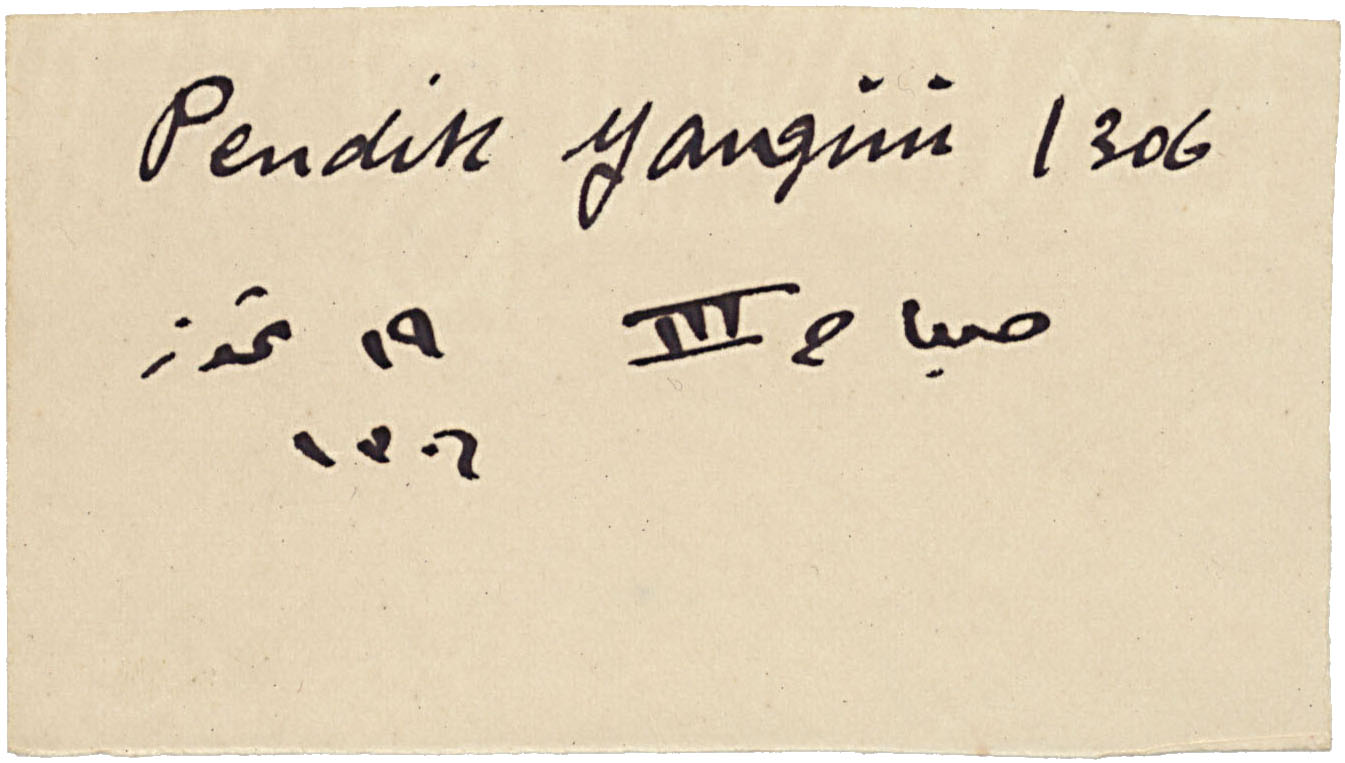 Pendik yangini 1306
صباح III ١٩ تموز
١٣٠٦